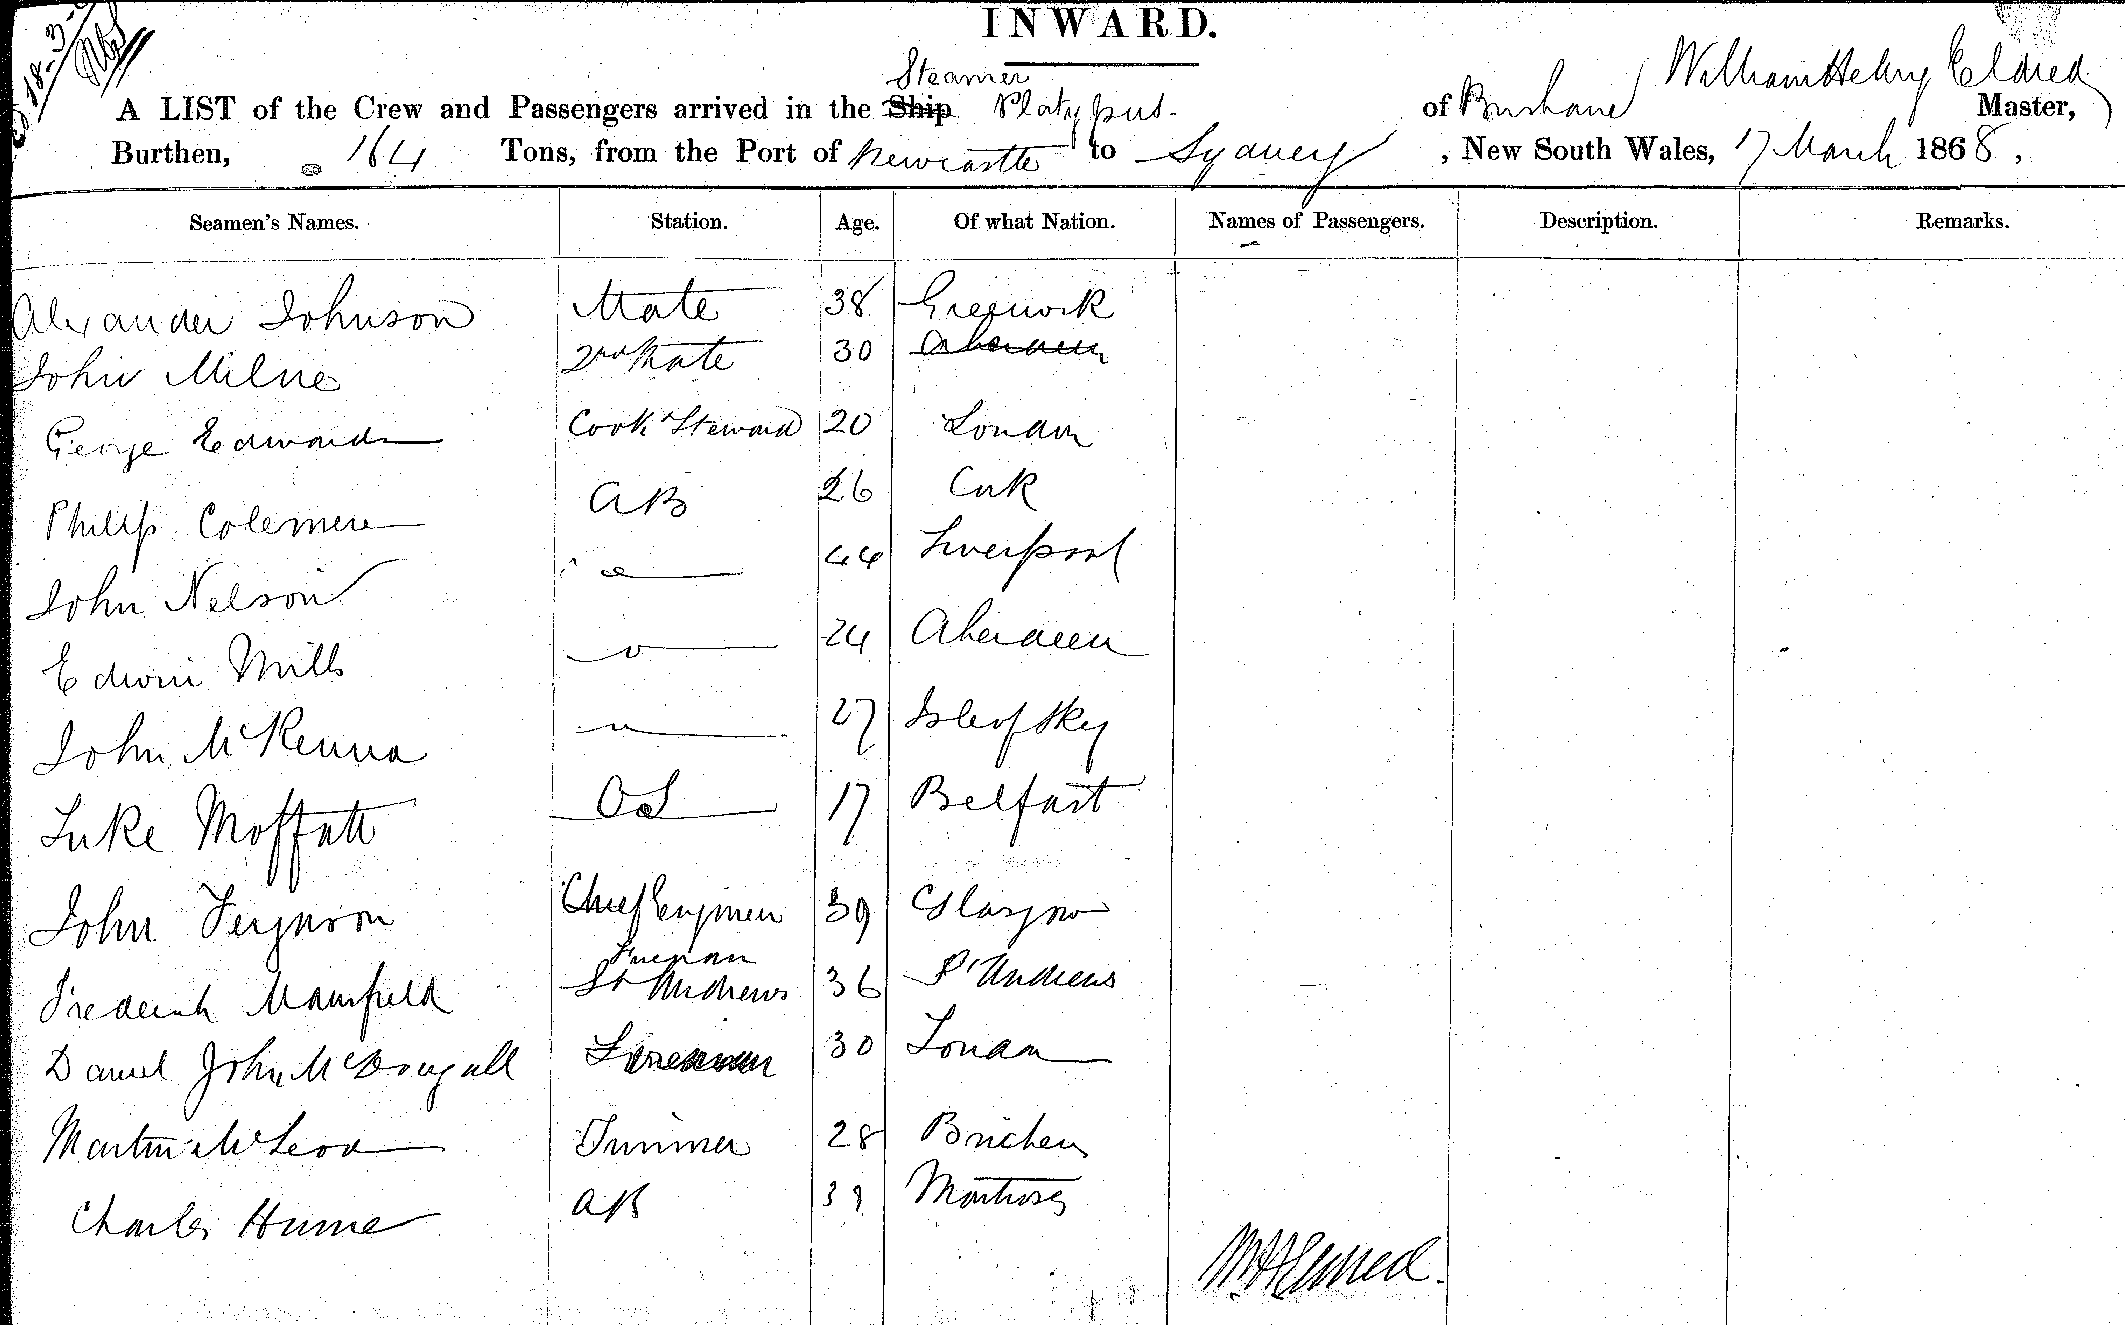 18-3-
INWARD.
Steamer
A LIST of the Crew and Passengers arrived in the Ship Platypus. of Brisbane William Henry Eldred Master,
Burthen, 164 Tons, from the Port of Newcastle to Sydney, New South Wales, 17 March 1868,
Seamen's Names. Station. Age. Of what Nation. Names of Passengers. Description. Remarks.
Alexander Johnson Mate 38 Greenock
John Milne 2nd Mate 30 Aberdeen
George Edwards Cook & Steward 20 London
Philip Colemere AB 26 Cork
John Nelson 44 Liverpool
Edwin Mills 24 Aberdeen
John McKenna 27 Isle of Sky
Luke Moffatt OS 17 Belfast
John Ferguson Chief Engineer 39 Glasgow
Fireman
Frederick Mansfield St Andrews 36 St Andrews
Daniel John McDougall Fireman 30 London
Martin McLeod Trimmer 28 Brichen
Charles Hume AB 38 Montrose
WHEldred.